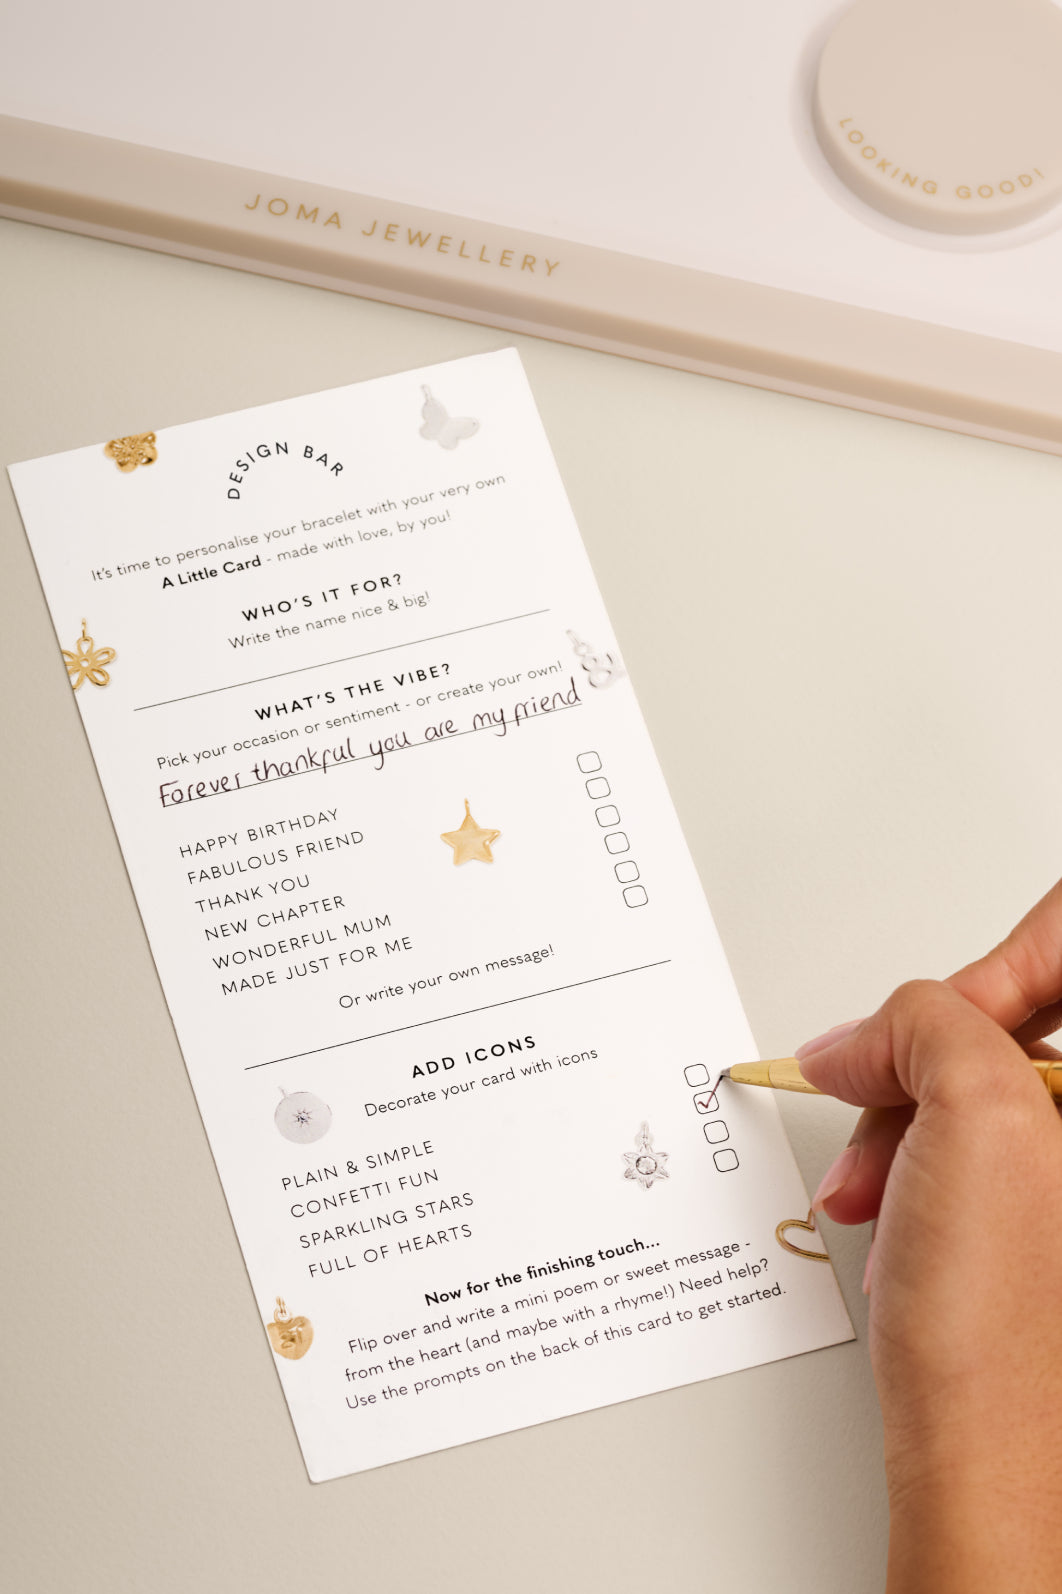 LOOKING GOOD!
JOMA JEWELLERY
DESIGN BAR
It's time to personalise your bracelet with your very own
A Little Card - made with love, by you!
WHO'S IT FOR?
Write the name nice & big!
WHAT'S THE VIBE?
Pick your occasion or sentiment - or create your own!
Forever thankful you are my friend
HAPPY BIRTHDAY
FABULOUS FRIEND
THANK YOU
NEW CHAPTER
WONDERFUL MUM
MADE JUST FOR ME
Or write your own message!
ADD ICONS
Decorate your card with icons
PLAIN & SIMPLE
CONFETTI FUN
SPARKLING STARS
FULL OF HEARTS
Now for the finishing touch...
Flip over and write a mini poem or sweet message -
from the heart (and maybe with a rhyme!) Need help?
Use the prompts on the back of this card to get started.
21